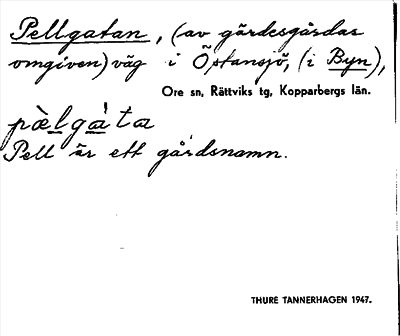 Pellgatan, (av gärdesgårdar
omgiven) väg i Östansjö, (i Byn),
Ore sn, Rättviks tg, Kopparbergs län.
pæ̀lgàta
Pell är ett gårdsnamn.
THURE TANNERHAGEN 1947.